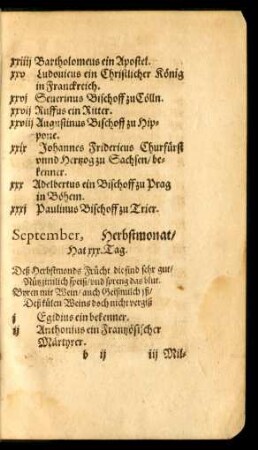 xxiiij Bartholomeus ein Apostel.
xxv Ludouicus ein Christlicher König
in Franckreich.
xxvj Seuerinus Bischoff zu Cölln.
xxvij Ruffus ein Ritter.
xxviij Augustinus Bischoff zu Hip-
pone.
xxix Johannes Fridericus Churfürst
vnnd Hertzog zu Sachsen / be-
kenner.
xxx Adelbertus ein Bischoff zu Prag
in Böhem.
xxxj Paulinus Bischoff zu Trier.
September, Herbstmonat /
Hat xxx. Tag.
Deß Herbstmonds Frücht die sind sehr gut /
Nützt menschlich speiß / vnd sterckt das blut.
Byren mit Wein / auch Geißmilch yß /
Deß süssen Weins doch nicht vergiß
j Egidius ein bekenner.
ij Anthonius ein Frantzösischer
Märtyrer.
b ij iij Mil-